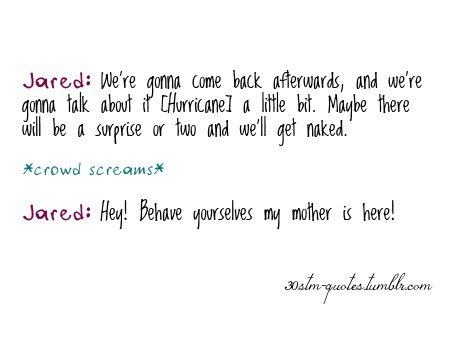 Jared: We're gonna come back afterwards, and we're
gonna talk about it [Hurricane] a little bit. Maybe there
will be a surprise or two and we'll get naked.
*crowd screams*
Jared: Hey! Behave yourselves my mother is here!
30stm-quotes.tumblr.com